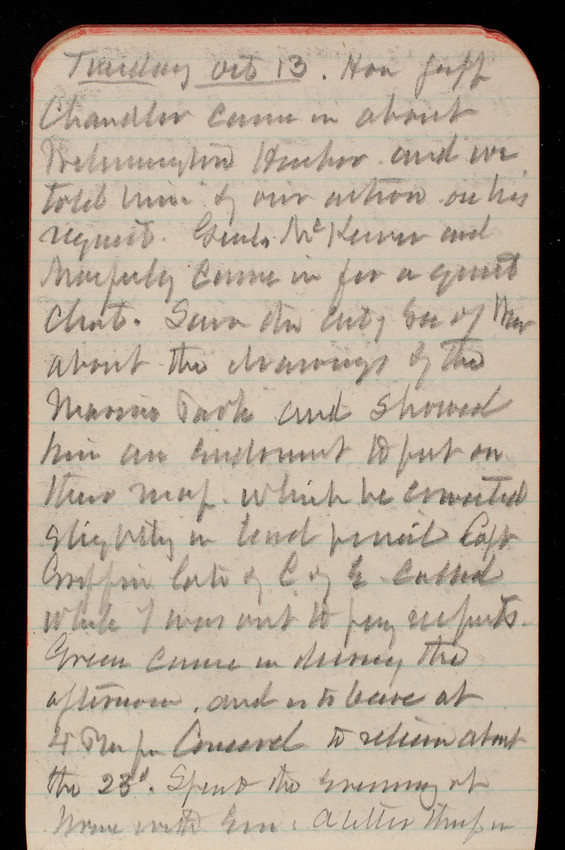 Tuesday Oct 13. Hon Jeff
Chandler came in about
Wilmington Harbor. and we
told him of our action on his
request. Genls McKeever and
came in for a quiet
Chat. Saw the actg Sec of War
about the drawings of the
and showed
him an endorsement to put on
their map. which he corrected
slightly in lead pencil Capt
Griffin late of C of E. called
while I was out to pay respects.
Green came in during the
afternoon, and is to leave at
4 P.m for Concord to return about
the 23d. Spent the evening at
home with Em. A letter